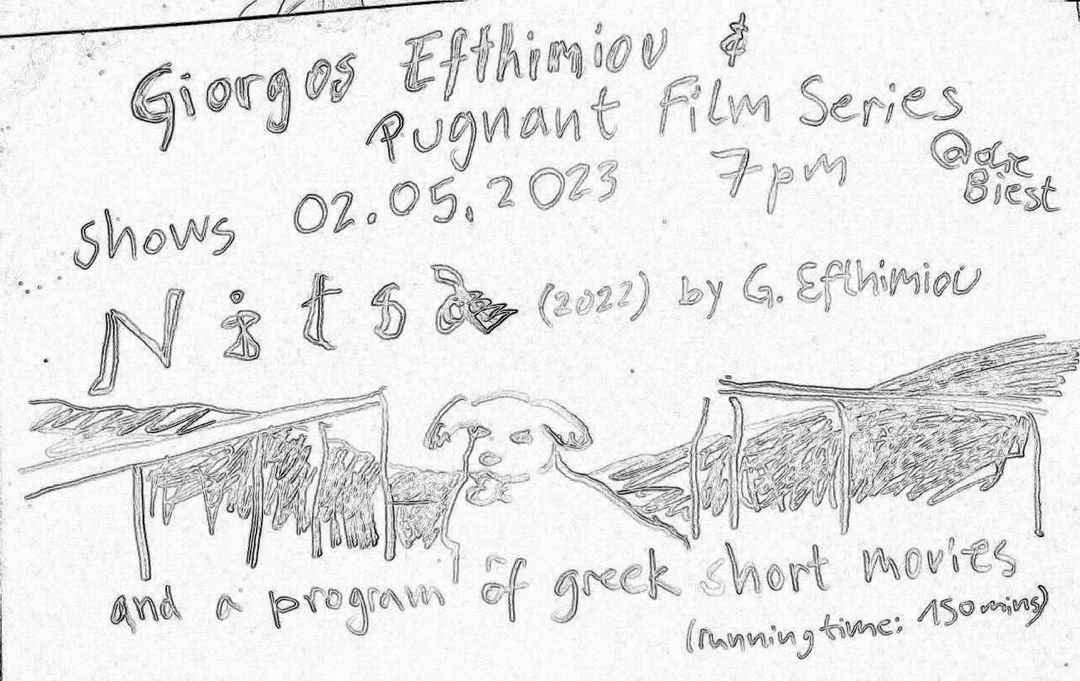 Giorgos Efthimiou &
Pugnant Film Series
@die
Biest
shows 02.05.2023 7pm
Nitsa (2022) by G. Efthimiou
and a program of greek short movies
(running time: 150 mins)